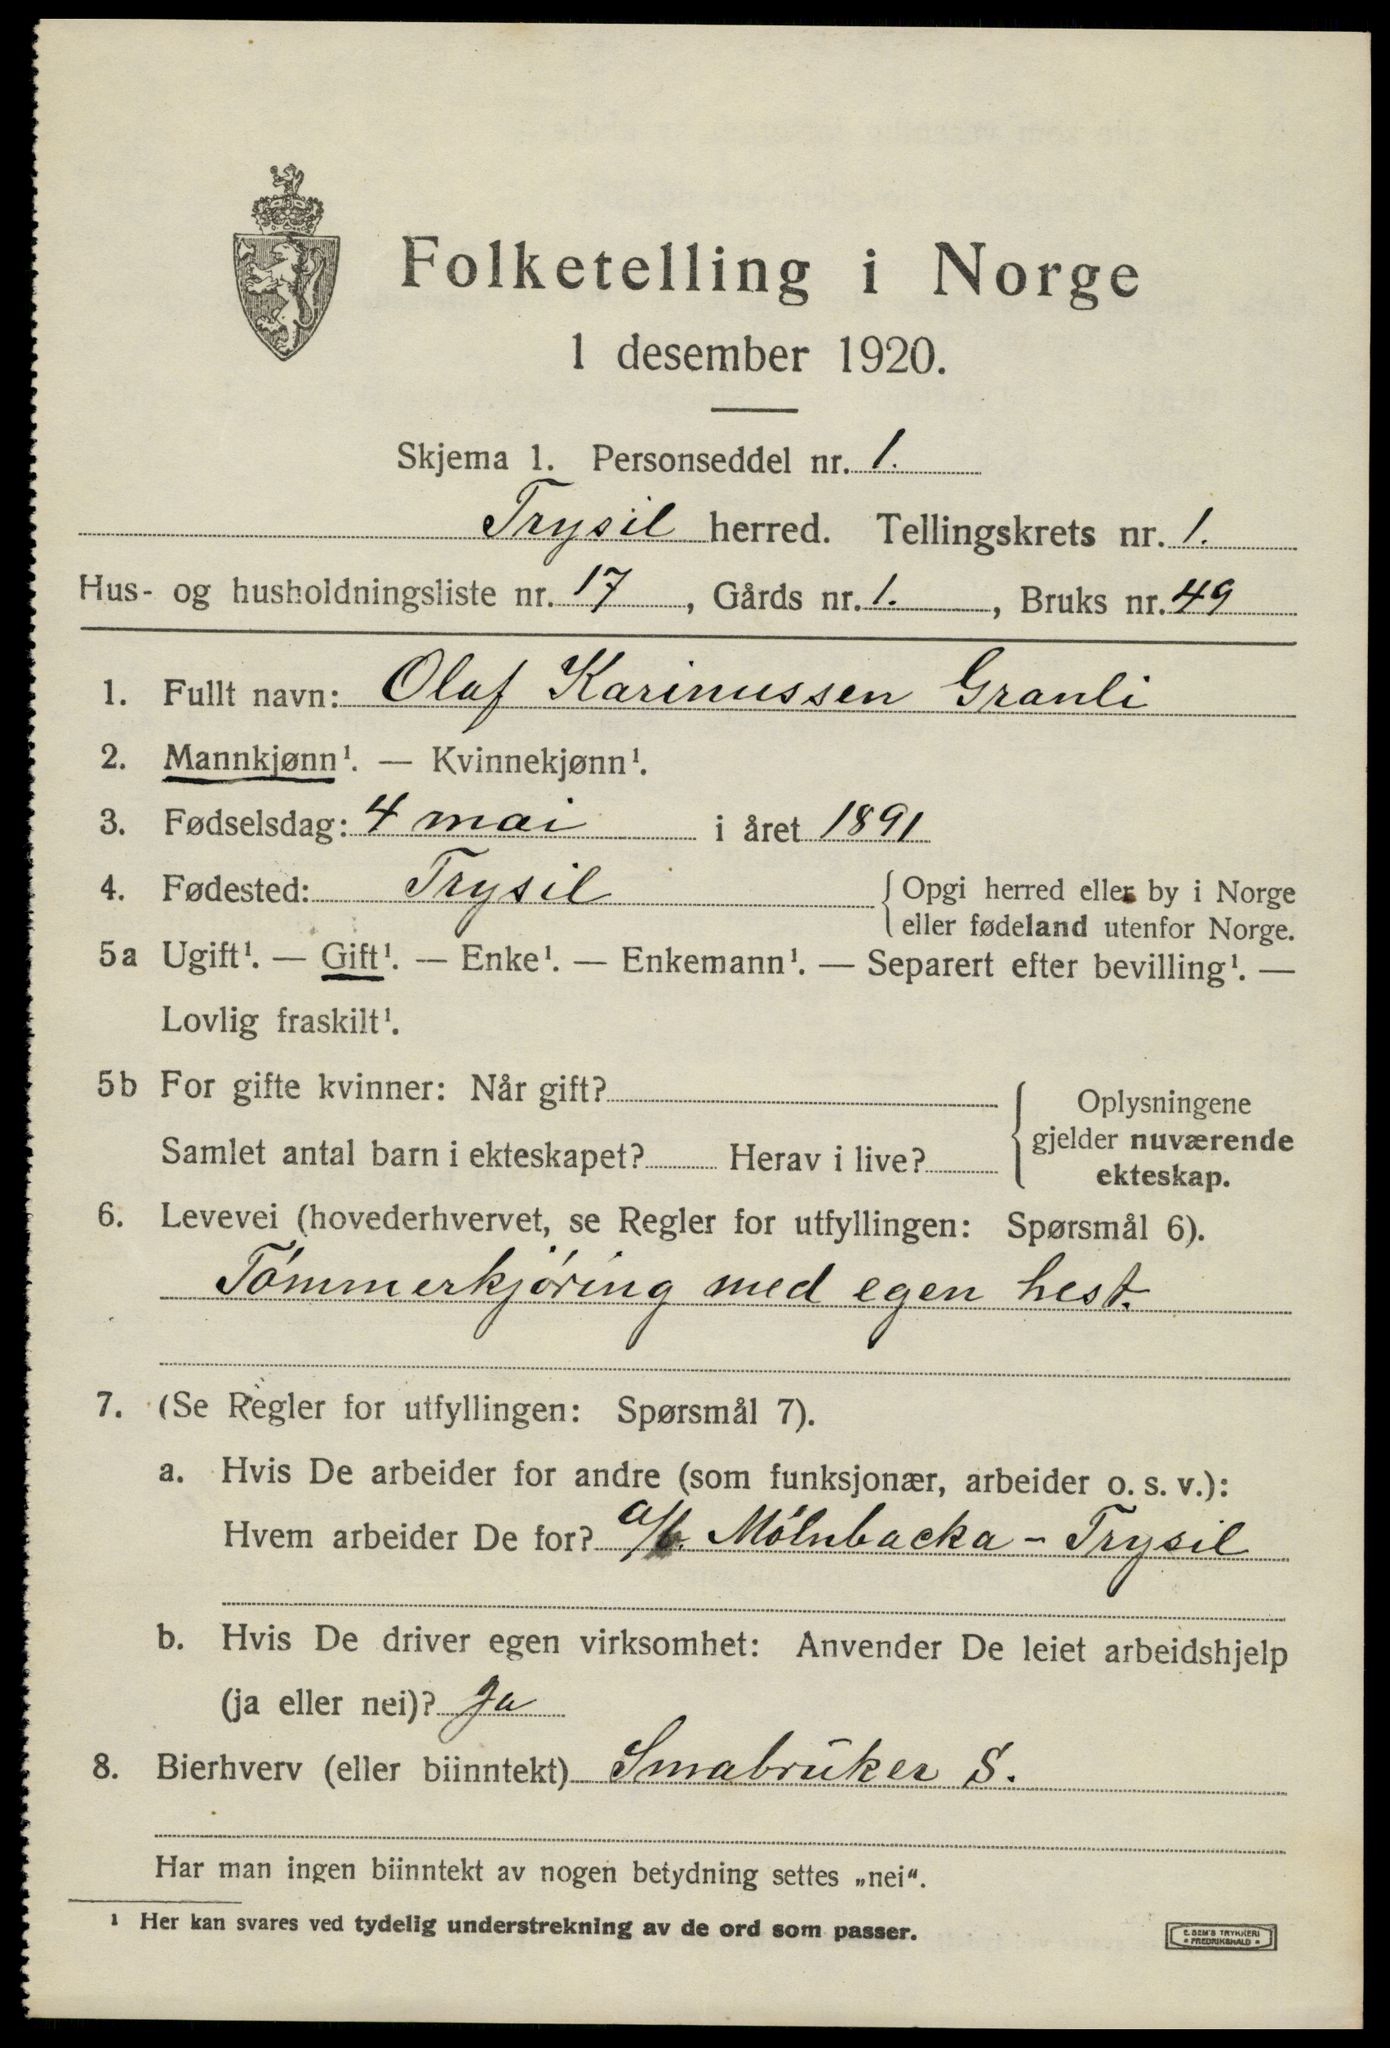 Folketelling i Norge
1 desember 1920.
Skjema 1. Personseddel nr. 1.
Trysil herred. Tellingskrets nr. 1.
Hus- og husholdningsliste nr. 17, Gårds nr. 1., Bruks nr. 49
1. Fullt navn: Olaf Karinussen Granli
2. Mannkjønn¹. — Kvinnekjønn¹.
3. Fødselsdag: 4 mai i året 1891
4. Fødested: Trysil
Opgi herred eller by i Norge
eller fødeland utenfor Norge.
5a Ugift¹. — Gift¹. — Enke¹. — Enkemann¹. — Separert efter bevilling¹. —
Lovlig fraskilt¹.
5b For gifte kvinner: Når gift?
Samlet antal barn i ekteskapet? Herav i live?
Oplysningene
gjelder nuværende
ekteskap.
6. Levevei (hovederhvervet, se Regler for utfyllingen: Spørsmål 6).
Tömmerkjöring med egen hest.
7. (Se Regler for utfyllingen: Spørsmål 7).
a. Hvis De arbeider for andre (som funksjonær, arbeider o. s. v.):
Hvem arbeider De for? a/b. Mölnbacka - Trysil
b. Hvis De driver egen virksomhet: Anvender De leiet arbeidshjelp
(ja eller nei)? Ja
8. Bierhverv (eller biinntekt) Smabrüker S.
Har man ingen biinntekt av nogen betydning settes „nei“.
¹ Her kan svares ved tydelig understrekning av de ord som passer.
E. SEM'S TRYKKERI
• FREDRIKSHALD •